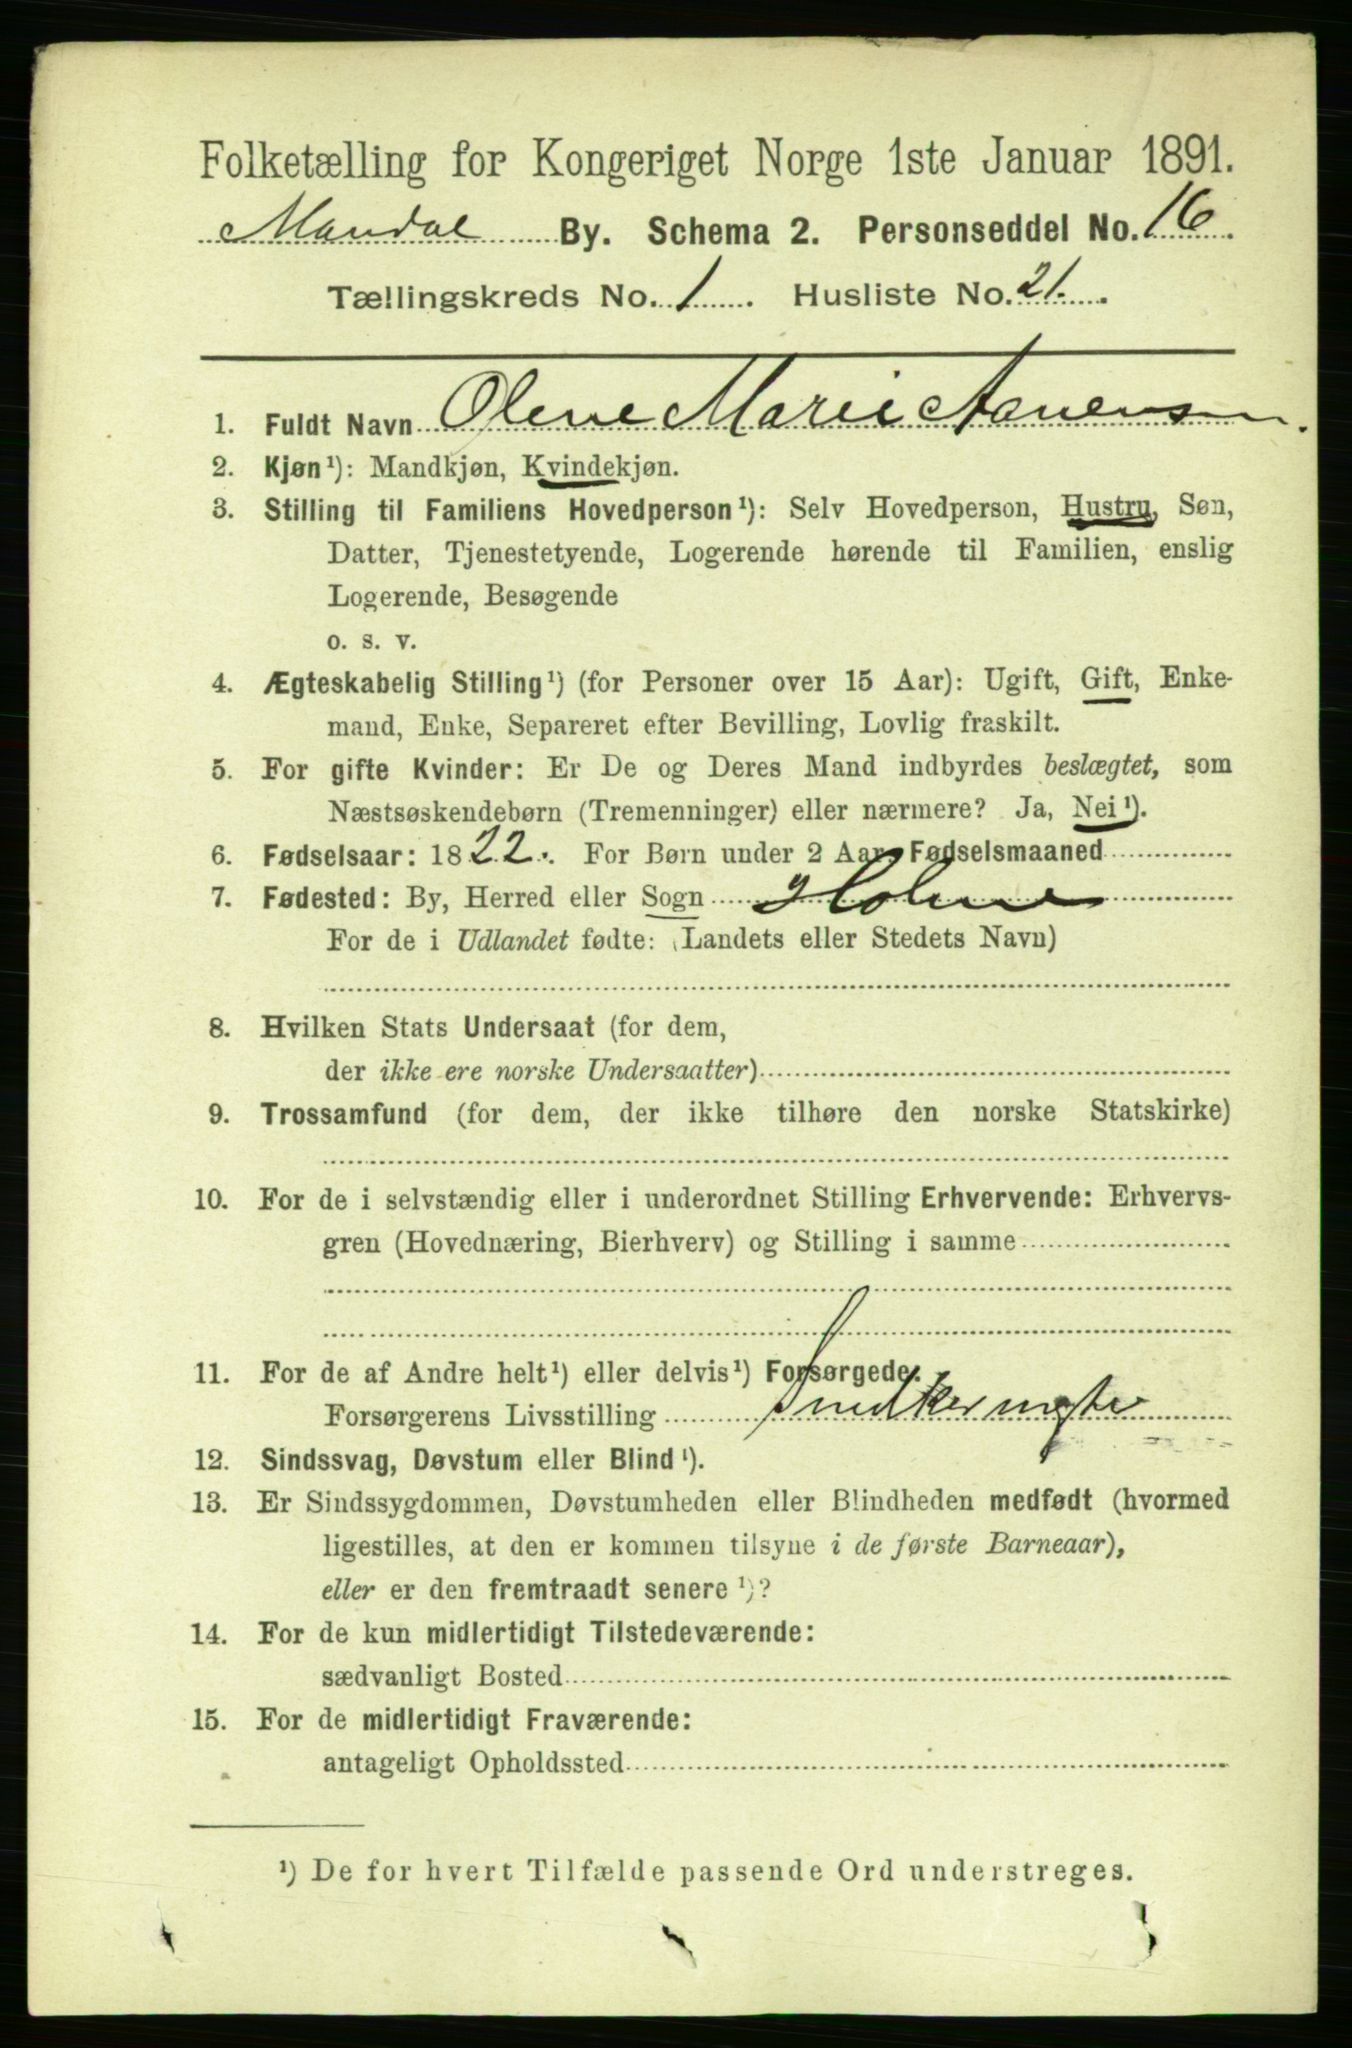 Folketælling for Kongeriget Norge 1ste Januar 1891.
Mandal By. Schema 2. Personseddel No. 16.
Tællingskreds No. 1. Husliste No. 21.
1. Fuldt Navn Olene Marie Aanensen.
2. Kjøn¹): Mandkjøn, Kvindekjøn.
3. Stilling til Familiens Hovedperson¹): Selv Hovedperson, Hustru, Søn,
Datter, Tjenestetyende, Logerende hørende til Familien, enslig
Logerende, Besøgende
o. s. v.
4. Ægteskabelig Stilling¹) (for Personer over 15 Aar): Ugift, Gift, Enke-
mand, Enke, Separeret efter Bevilling, Lovlig fraskilt.
5. For gifte Kvinder: Er De og Deres Mand indbyrdes beslægtet, som
Næstsøskendebørn (Tremenninger) eller nærmere? Ja, Nei¹).
6. Fødselsaar: 1822. For Børn under 2 Aar, Fødselsmaaned
7. Fødested: By, Herred eller Sogn Holme
For de i Udlandet fødte: (Landets eller Stedets Navn)
8. Hvilken Stats Undersaat (for dem,
der ikke ere norske Undersaatter)
9. Trossamfund (for dem, der ikke tilhøre den norske Statskirke)
10. For de i selvstændig eller i underordnet Stilling Erhvervende: Erhvervs-
gren (Hovednæring, Bierhverv) og Stilling i samme
11. For de af Andre helt¹) eller delvis¹) Forsørgede:
Forsørgerens Livsstilling Snedker
12. Sindssvag, Døvstum eller Blind¹).
13. Er Sindssygdommen, Døvstumheden eller Blindheden medfødt (hvormed
ligestilles, at den er kommen tilsyne i de første Barneaar),
eller er den fremtraadt senere¹)?
14. For de kun midlertidigt Tilstedeværende:
sædvanligt Bosted
15. For de midlertidigt Fraværende:
antageligt Opholdssted
¹) De for hvert Tilfælde passende Ord understreges.